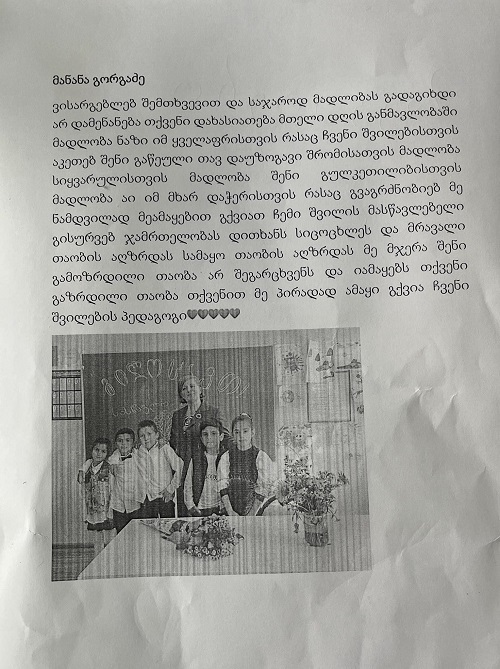 მანანა გორგაძე
ვისარგებლებ შემთხვევით და საჯაროდ მადლიბას გადაგიხდი
არ დამენანება თქვენი დახასიათება მთელი დღის განმავლობაში
მადლობა ნაზი იმ ყველაფრისთვის რასაც ჩვენი შვილებისთვის
აკეთებ შენი გაწეული თავ დაუზოგავი შრომისათვის მადლობა
სიყვარულისთვის მადლობა შენი გულკეთილიბისთვის
მადლობა აი იმ მხარ დაჭერისთვის რასაც გვაგრმნობიებ მე
ნამდვილად მეამაყებით გქვიათ ჩემი შვილის მასწავლებელი
გისურვებ ჯამრთელობას დითხანს სიცოცხლეს და მრავალი
თაობის აღზრდას სამაყო თაობის აღზრდას მე მჯერა შენი
გამოზრდილი თაობა არ შეგარცხვენს და იამაყებს თქვენი
გაზრდილი თაობა თქვენით მე პირადად ამაყი გქვია ჩვენი
შვილების პედაგოგი♥♥♥♥♥
გილოცავთ